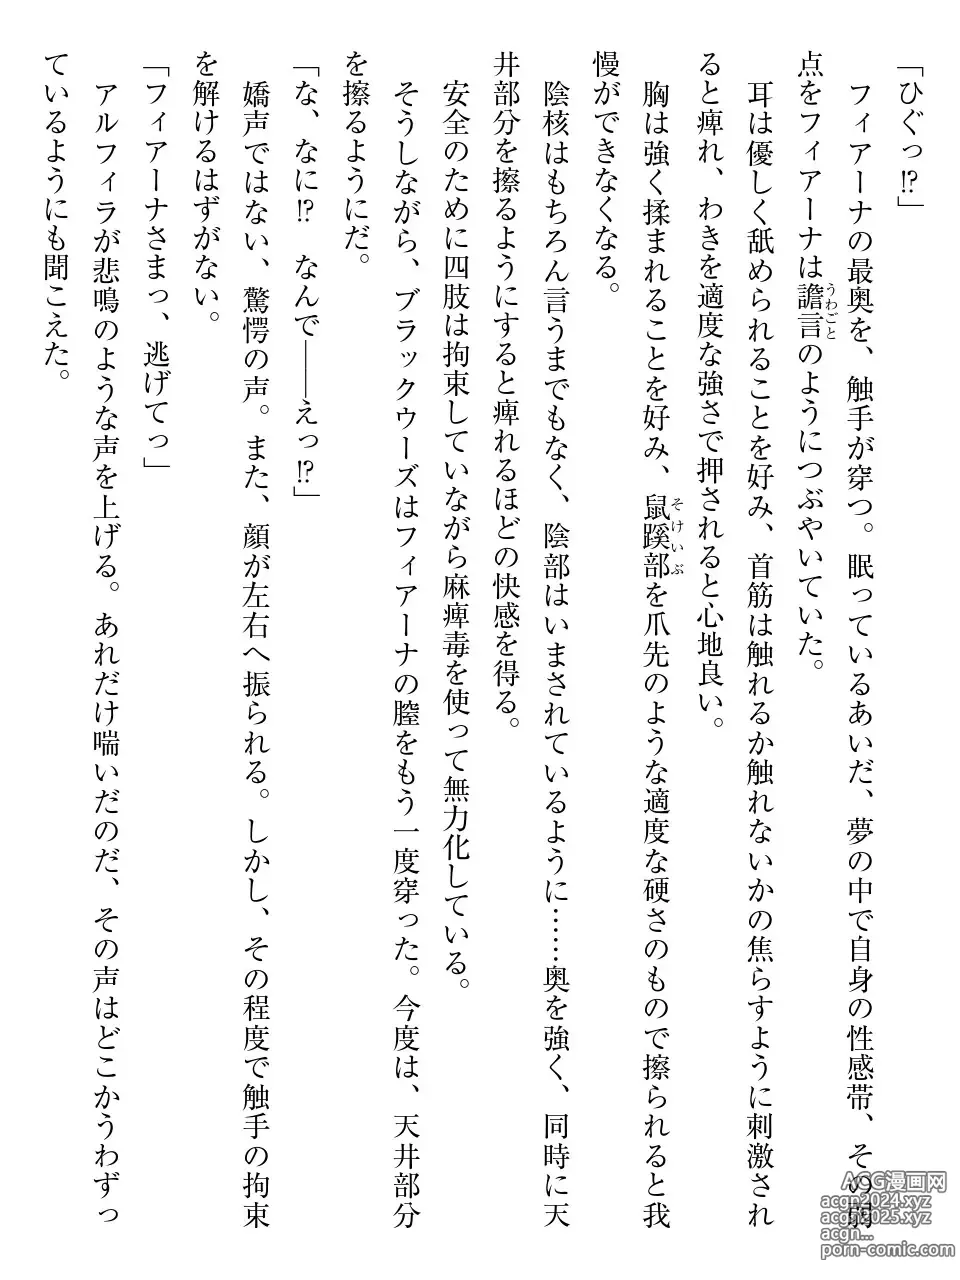 「ひぐっ!?」
フィアーナの最奥を、触手が穿つ。眠っているあいだ、夢の中で自身の性感帯、その弱
点をフィアーナは譫言のようにつぶやいていた。
うわごと
耳は優しく舐められることを好み、首筋は触れるか触れないかの焦らすように刺激され
ると痺れ、わきを適度な強さで押されると心地良い。
胸は強く揉まれることを好み、鼠蹊部を爪先のような適度な硬さのもので擦られると我
そけいぶ
慢ができなくなる。
陰核はもちろん言うまでもなく、陰部はいまされているように……奥を強く、同時に天
井部分を擦るようにすると痺れるほどの快感を得る。
安全のために四肢は拘束していながら麻痺毒を使って無力化している。
そうしながら、ブラックウーズはフィアーナの膣をもう一度穿った。今度は、天井部分
を擦るようにだ。
「な、なに!?　なんで――えっ!?」
嬌声ではない、驚愕の声。また、顔が左右へ振られる。しかし、その程度で触手の拘束
を解けるはずがない。
「フィアーナさまっ、逃げてっ」
アルフィラが悲鳴のような声を上げる。あれだけ喘いだのだ、その声はどこかうわずっ
ているようにも聞こえた。
ACG漫画网
acgn2024.xyz
acgn2025.xyz
acgn...
porn-comic.com